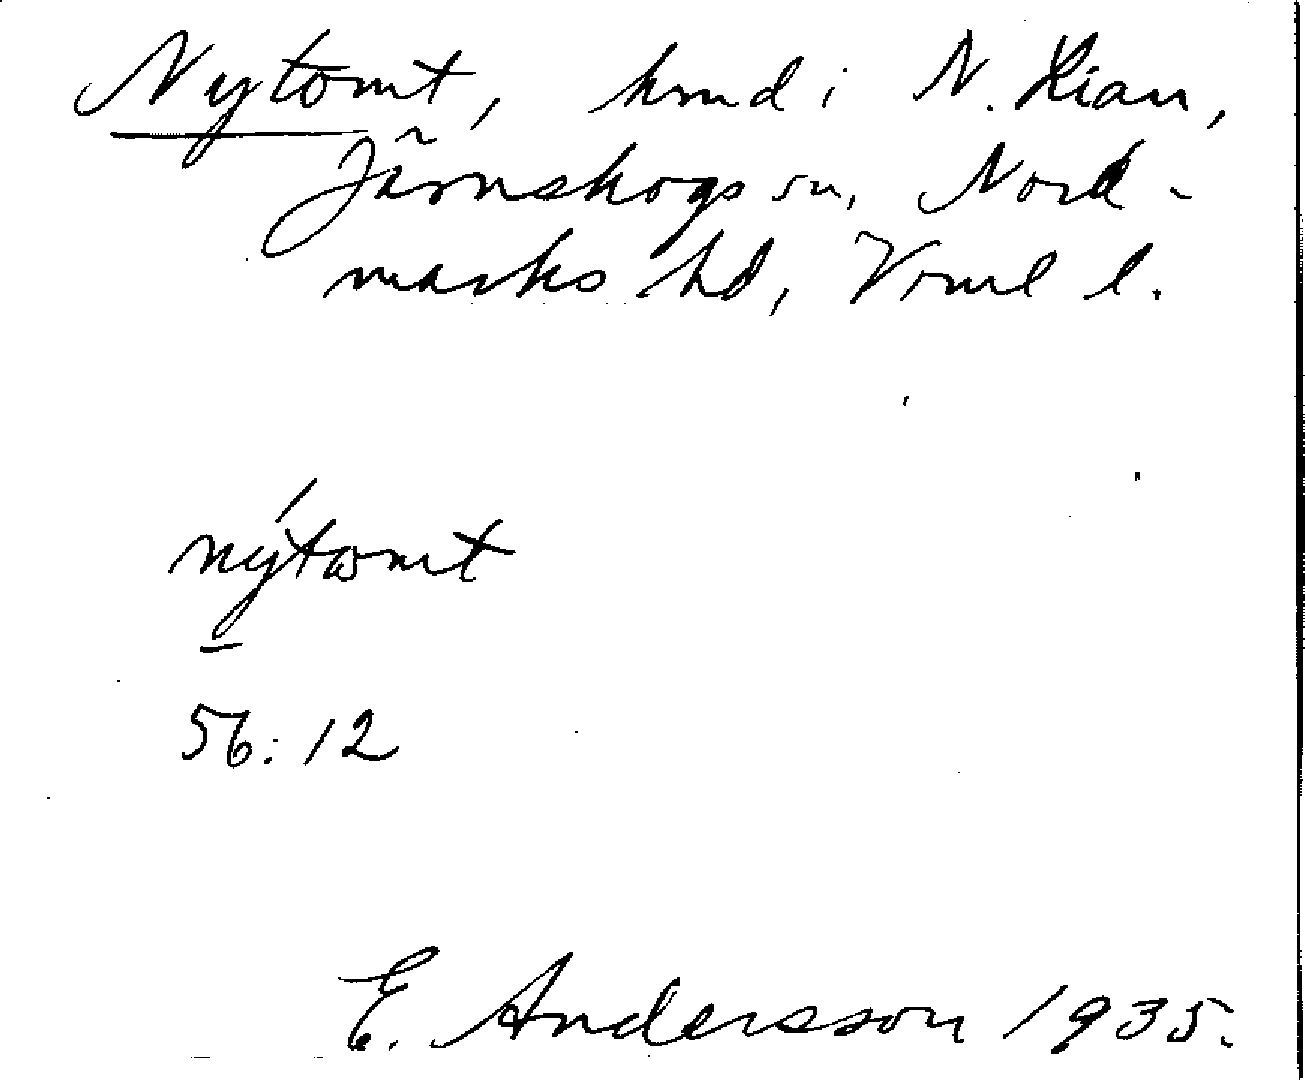 Nytomt, hmd i N. Kian,
Järnskogs sn, Nord-
marks hd, Vrml l.
nýtomt
56:12
E. Andersson 1935.